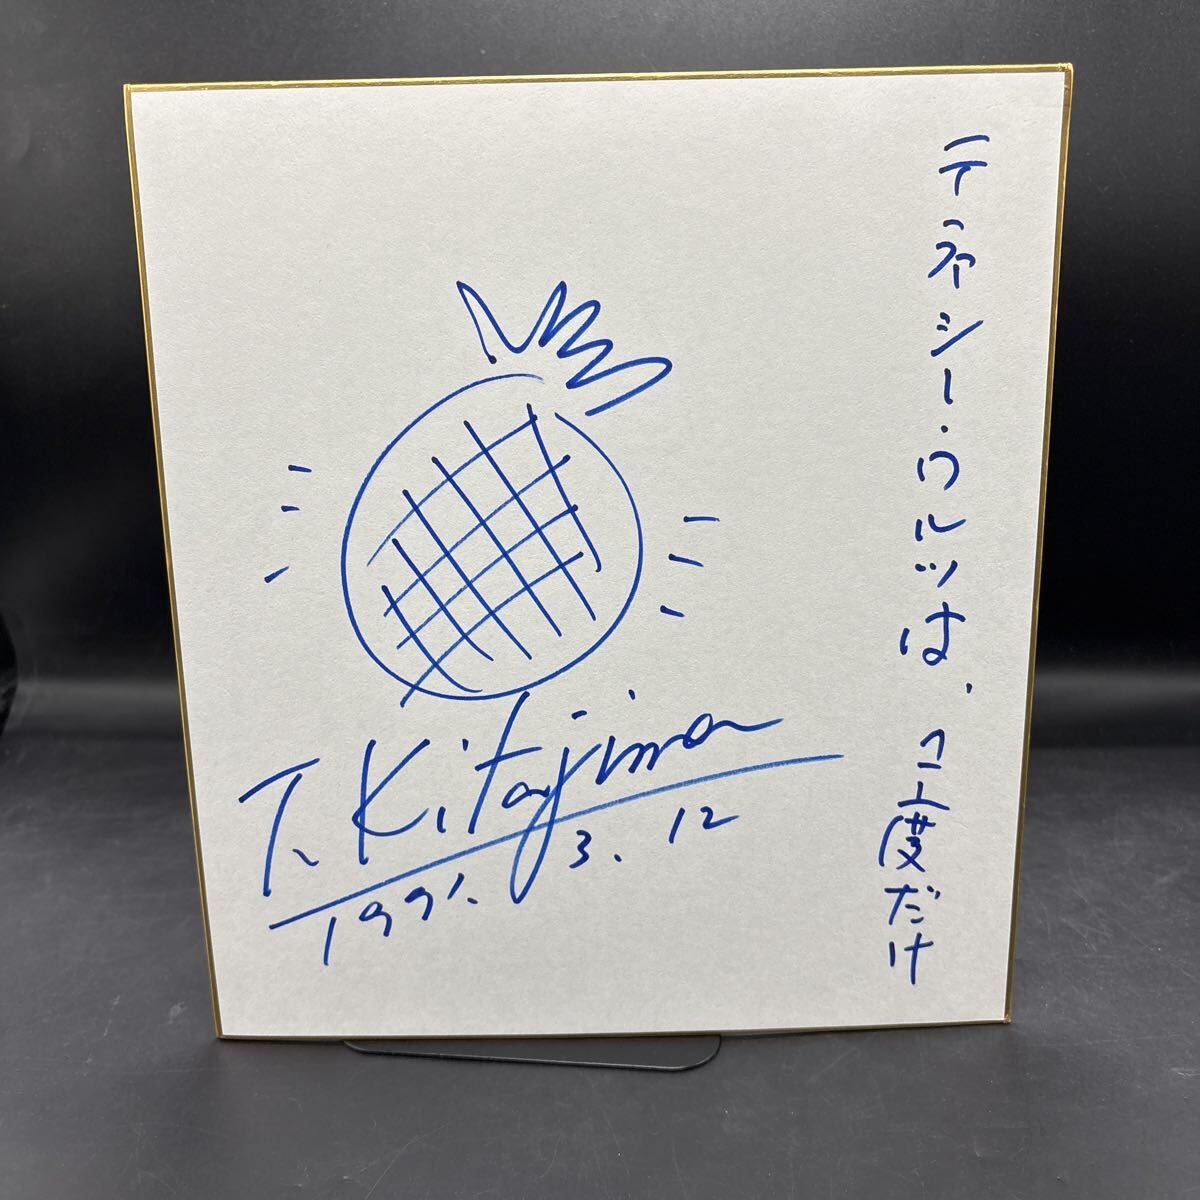 テネシー・ワルツは、度だけ
T. Kitajima
1991. 3. 12